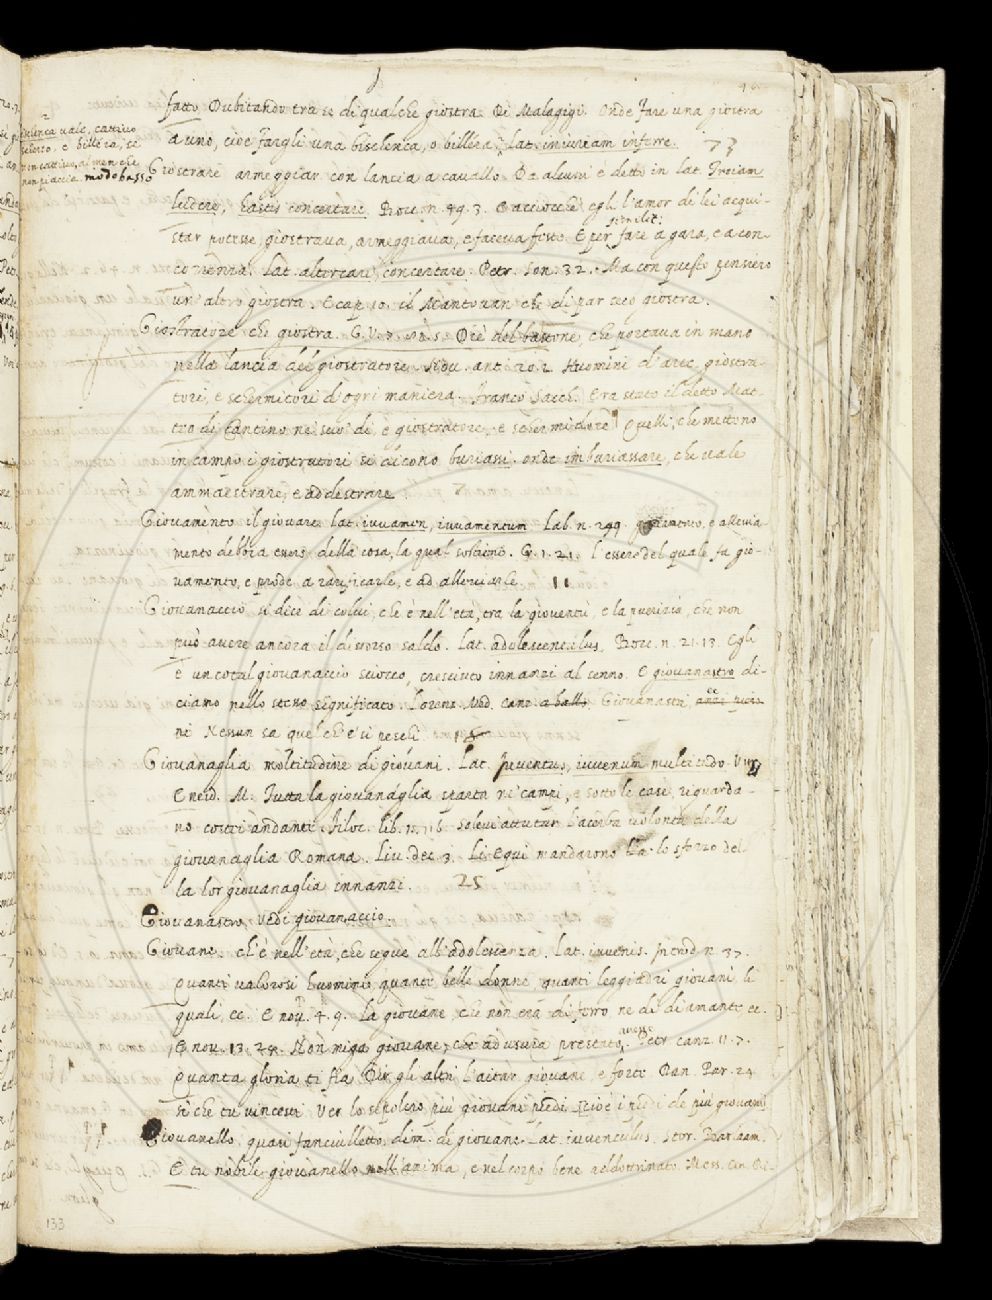 fatto. Dubitando tra se di qualche giostra di Malagigi. Onde fare una giostra
a uno, cioè fargli una bisclenca, o billéra, lat. iniuriam inferre. 73
vale, cattivo
scherzo. e billéra, se
non cattivo, almen che
non piaccia. modo basso
Giostrare armeggiar con lancia a cavallo. Da alcuni è detto in lat. Troiam
ludere, hastis concertare. Bocc. n. 49. 3. E acciocchè egli l'amor di lei acqui-
star potesse, giostrava, armeggiava, e faceva feste. E per similit: fare a gara, e a con-
correnza. Lat. altercari, concertare. Petr. Son. 32. Ma con questo pensiero
un' altro giostra. E cap. 10. il Mantovan che di par seco giostra.
Giostratore che giostra. G. V. Diè del bastone, che portava in mano
nella lancia del giostratore. Nov. ant. 20. 2. Huomini d'arte, giostra-
tori, e schermitori d'ogni maniera. Franco Sacch. Era stato il detto Mat-
teo di Cantino ne' suoi dì, e giostratore, e schermidore. Quelli, che mettono
in campo i giostratori se dicono buriassi. onde imburiassare, che vale
ammaestrare, e addestrare 7
Giovamento il giovare lat. iuvamen, iuvamentum Lab. n. 299. e allevia-
mento debbia avere della cosa, la qual sostiene. 1. 21. l'essere del quale fa gio-
vamento, e prode a rarificarle, e ad alleviarle. 11
Giovanaccio si dice di colui, che è nell'età, tra la gioventù, e la puerizia, che non
può avere ancora il discorso saldo. Lat. adolescentulus, Bocc. n. 21. 13. Egli
è un cotal giovanaccio sciocco, cresciuto innanzi al senno. E giovanastro di-
ciamo nello stesso significato. Lorenz. Med. canz. a ballo. Giovanastri,
ni Nessun sa quel ch'e' si peschi 15
Giovanaglia moltitudine di giovani. Lat. Juventus, iuvenum multitudo. Virg.
Eneid. M. Tutta la giovanaglia sparta ne' campi, e sotto le case riguarda-
no costei andante. Filoc. lib. 1. 115 l'acerba volontà della
giovanaglia Romana. Liv. dec. 3. Li Equi mandarono lo sforzo del
la lor giovanaglia innanzi. 25
Giovanastro, vedi giovanaccio.
Giovane. ch'è nell'età, che segue all'adolescenza. Lat. iuvenis. Introd. n. 37.
quanti valorosi huomini, quante belle donne, quanti leggiadri giovani, li
quali, ec. E nov. 4. 9. La giovane, che non era di ferro ne di diamante ec.
E nov. 13. 24. Non miga giovane, che ad usura prestato avesse. Petr canz. 11. 7.
Quanta gloria ti fia Dir gli altri l'aitar giovane, e forte Dan. Par. 24.
sì che tu vincesti Ver lo sepolcro più giovani piedi. cioè i piedi de più giovani
Giovanello, quasi fanciulletto, dim. di giovane. Lat. iuvenculus. Stor. Barlaam.
E tu nobile giovanello nell'anima, e nel corpo bene addottrinato. Mess.
133